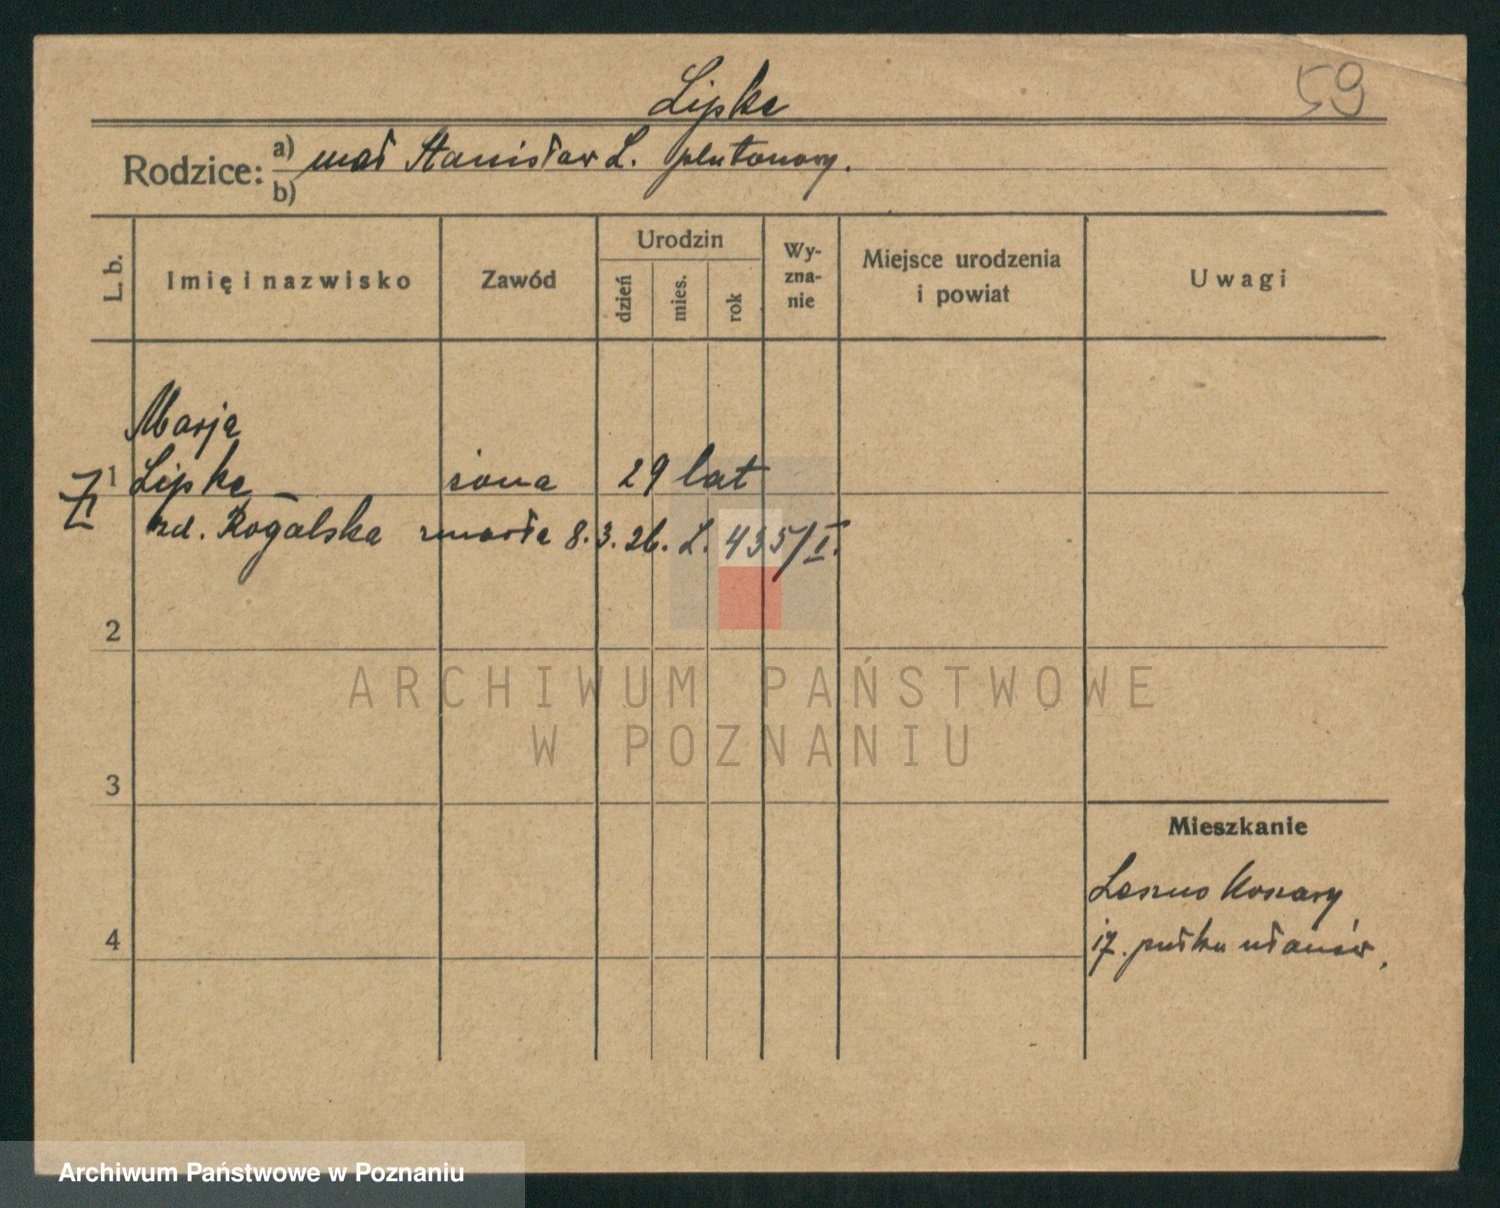 59
Lipke
Rodzice: a) mał Stanisław L. plutonowy.
b)
L. b. Imię i nazwisko Zawód Urodzin dzień mies. rok Wy-zna-nie Miejsce urodzenia i powiat Uwagi
Marja
1 Lipke żona 29 lat
zd. Rogalska zmarła 8.3.26. L. 435/I.
2
ARCHIWUM PAŃSTWOWE
W POZNANIU
3
Mieszkanie
Leszno Koszary
4
17. pułku ułanów.
Archiwum Państwowe w Poznaniu